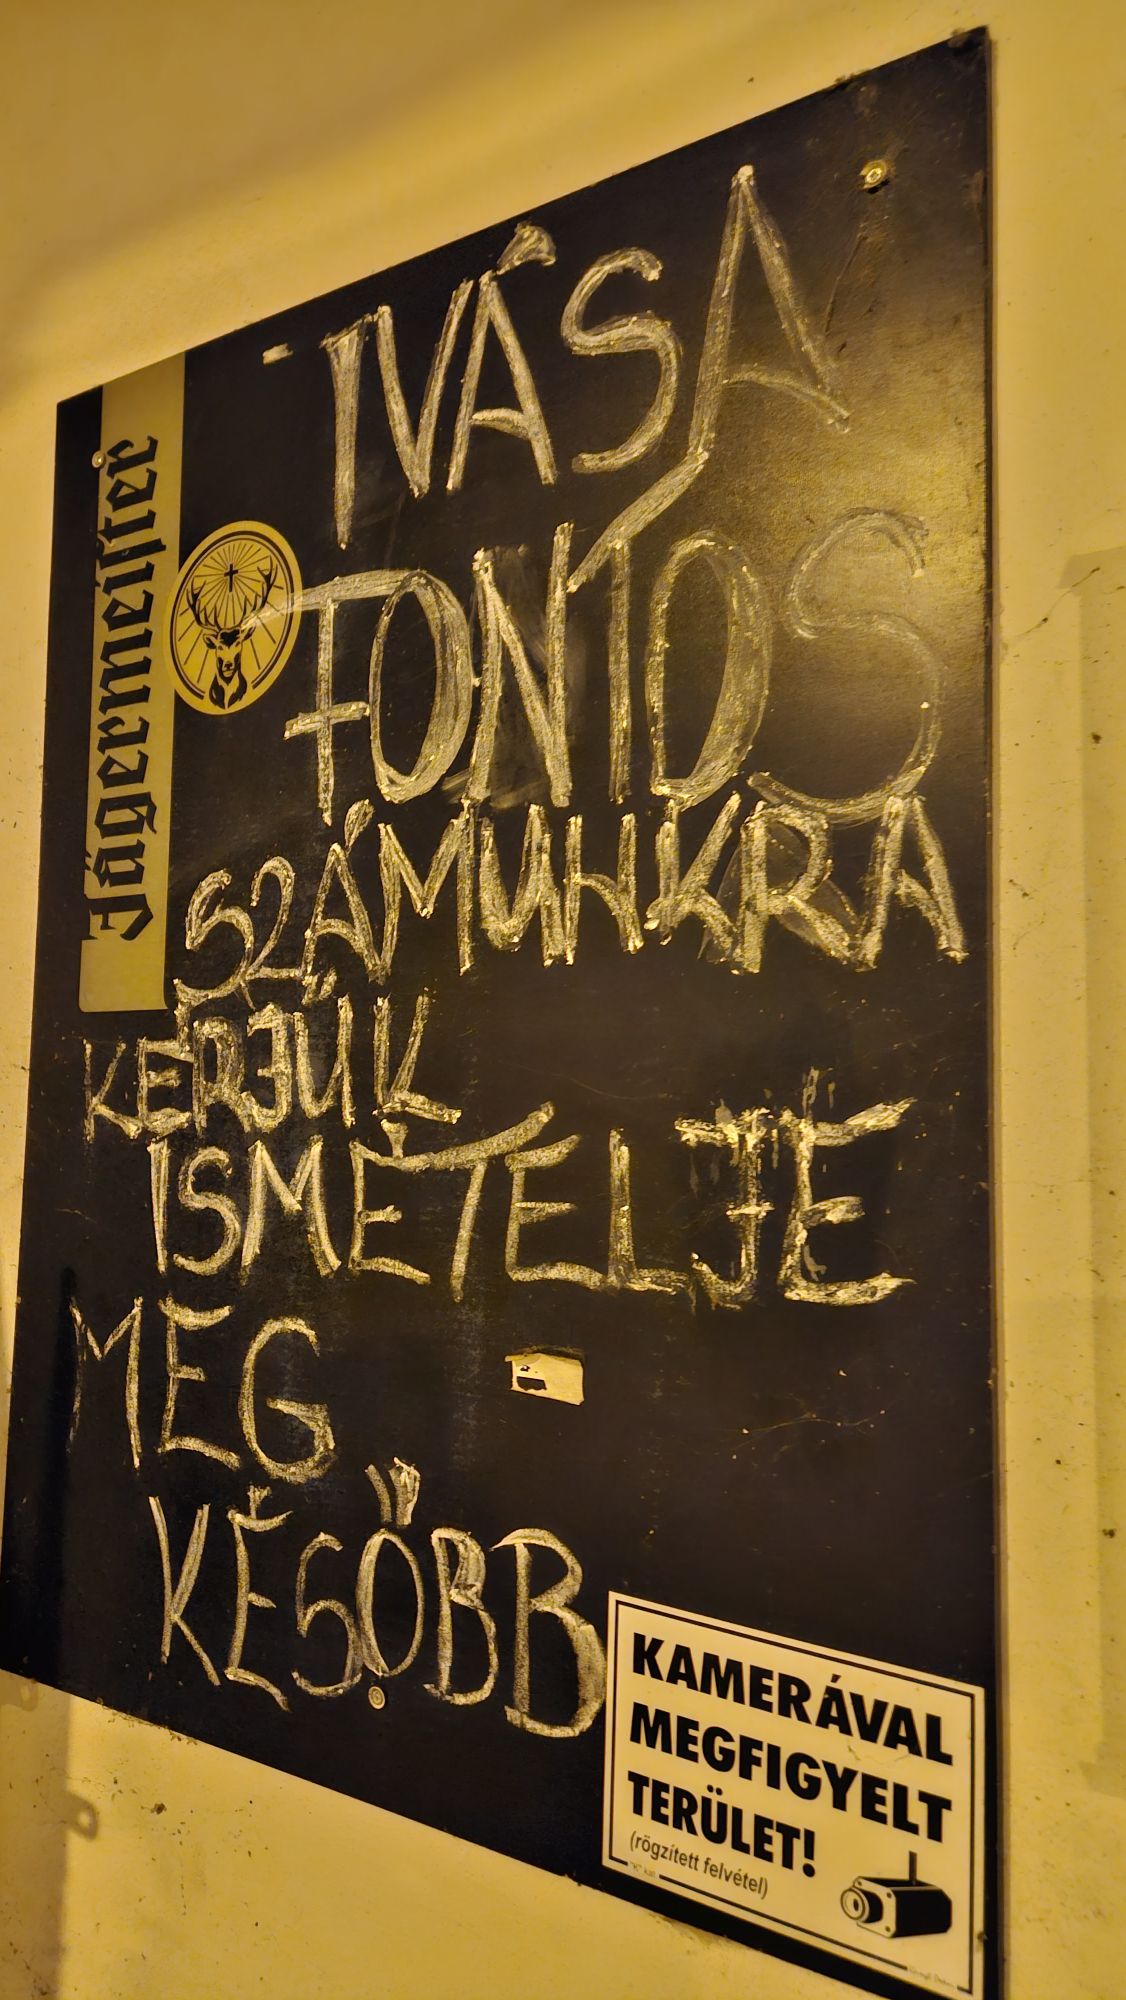 IVÁSA
FONTOS
SZÁMUNKRA
KÉRJÜK
ISMÉTELJE
MEG
KÉSŐBB
Jägermeister
KAMERÁVAL
MEGFIGYELT
TERÜLET!
(rögzített felvétel)